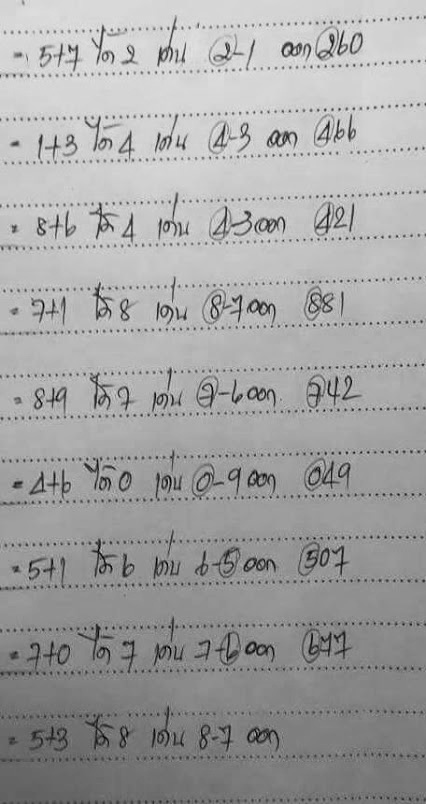 = 5+7 ได้ 2 เด่น 2-1 ออก 260
= 1+3 ได้ 4 เด่น 4-3 ออก 466
= 8+6 ได้ 4 เด่น 4-3 ออก 421
= 7+1 ได้ 8 เด่น 8-7 ออก 881
= 8+9 ได้ 7 เด่น 7-6 ออก 742
= 4+6 ได้ 0 เด่น 0-9 ออก 049
= 5+1 ได้ 6 เด่น 6-5 ออก 507
= 7+0 ได้ 7 เด่น 7-6 ออก 677
= 5+3 ได้ 8 เด่น 8-7 ออก